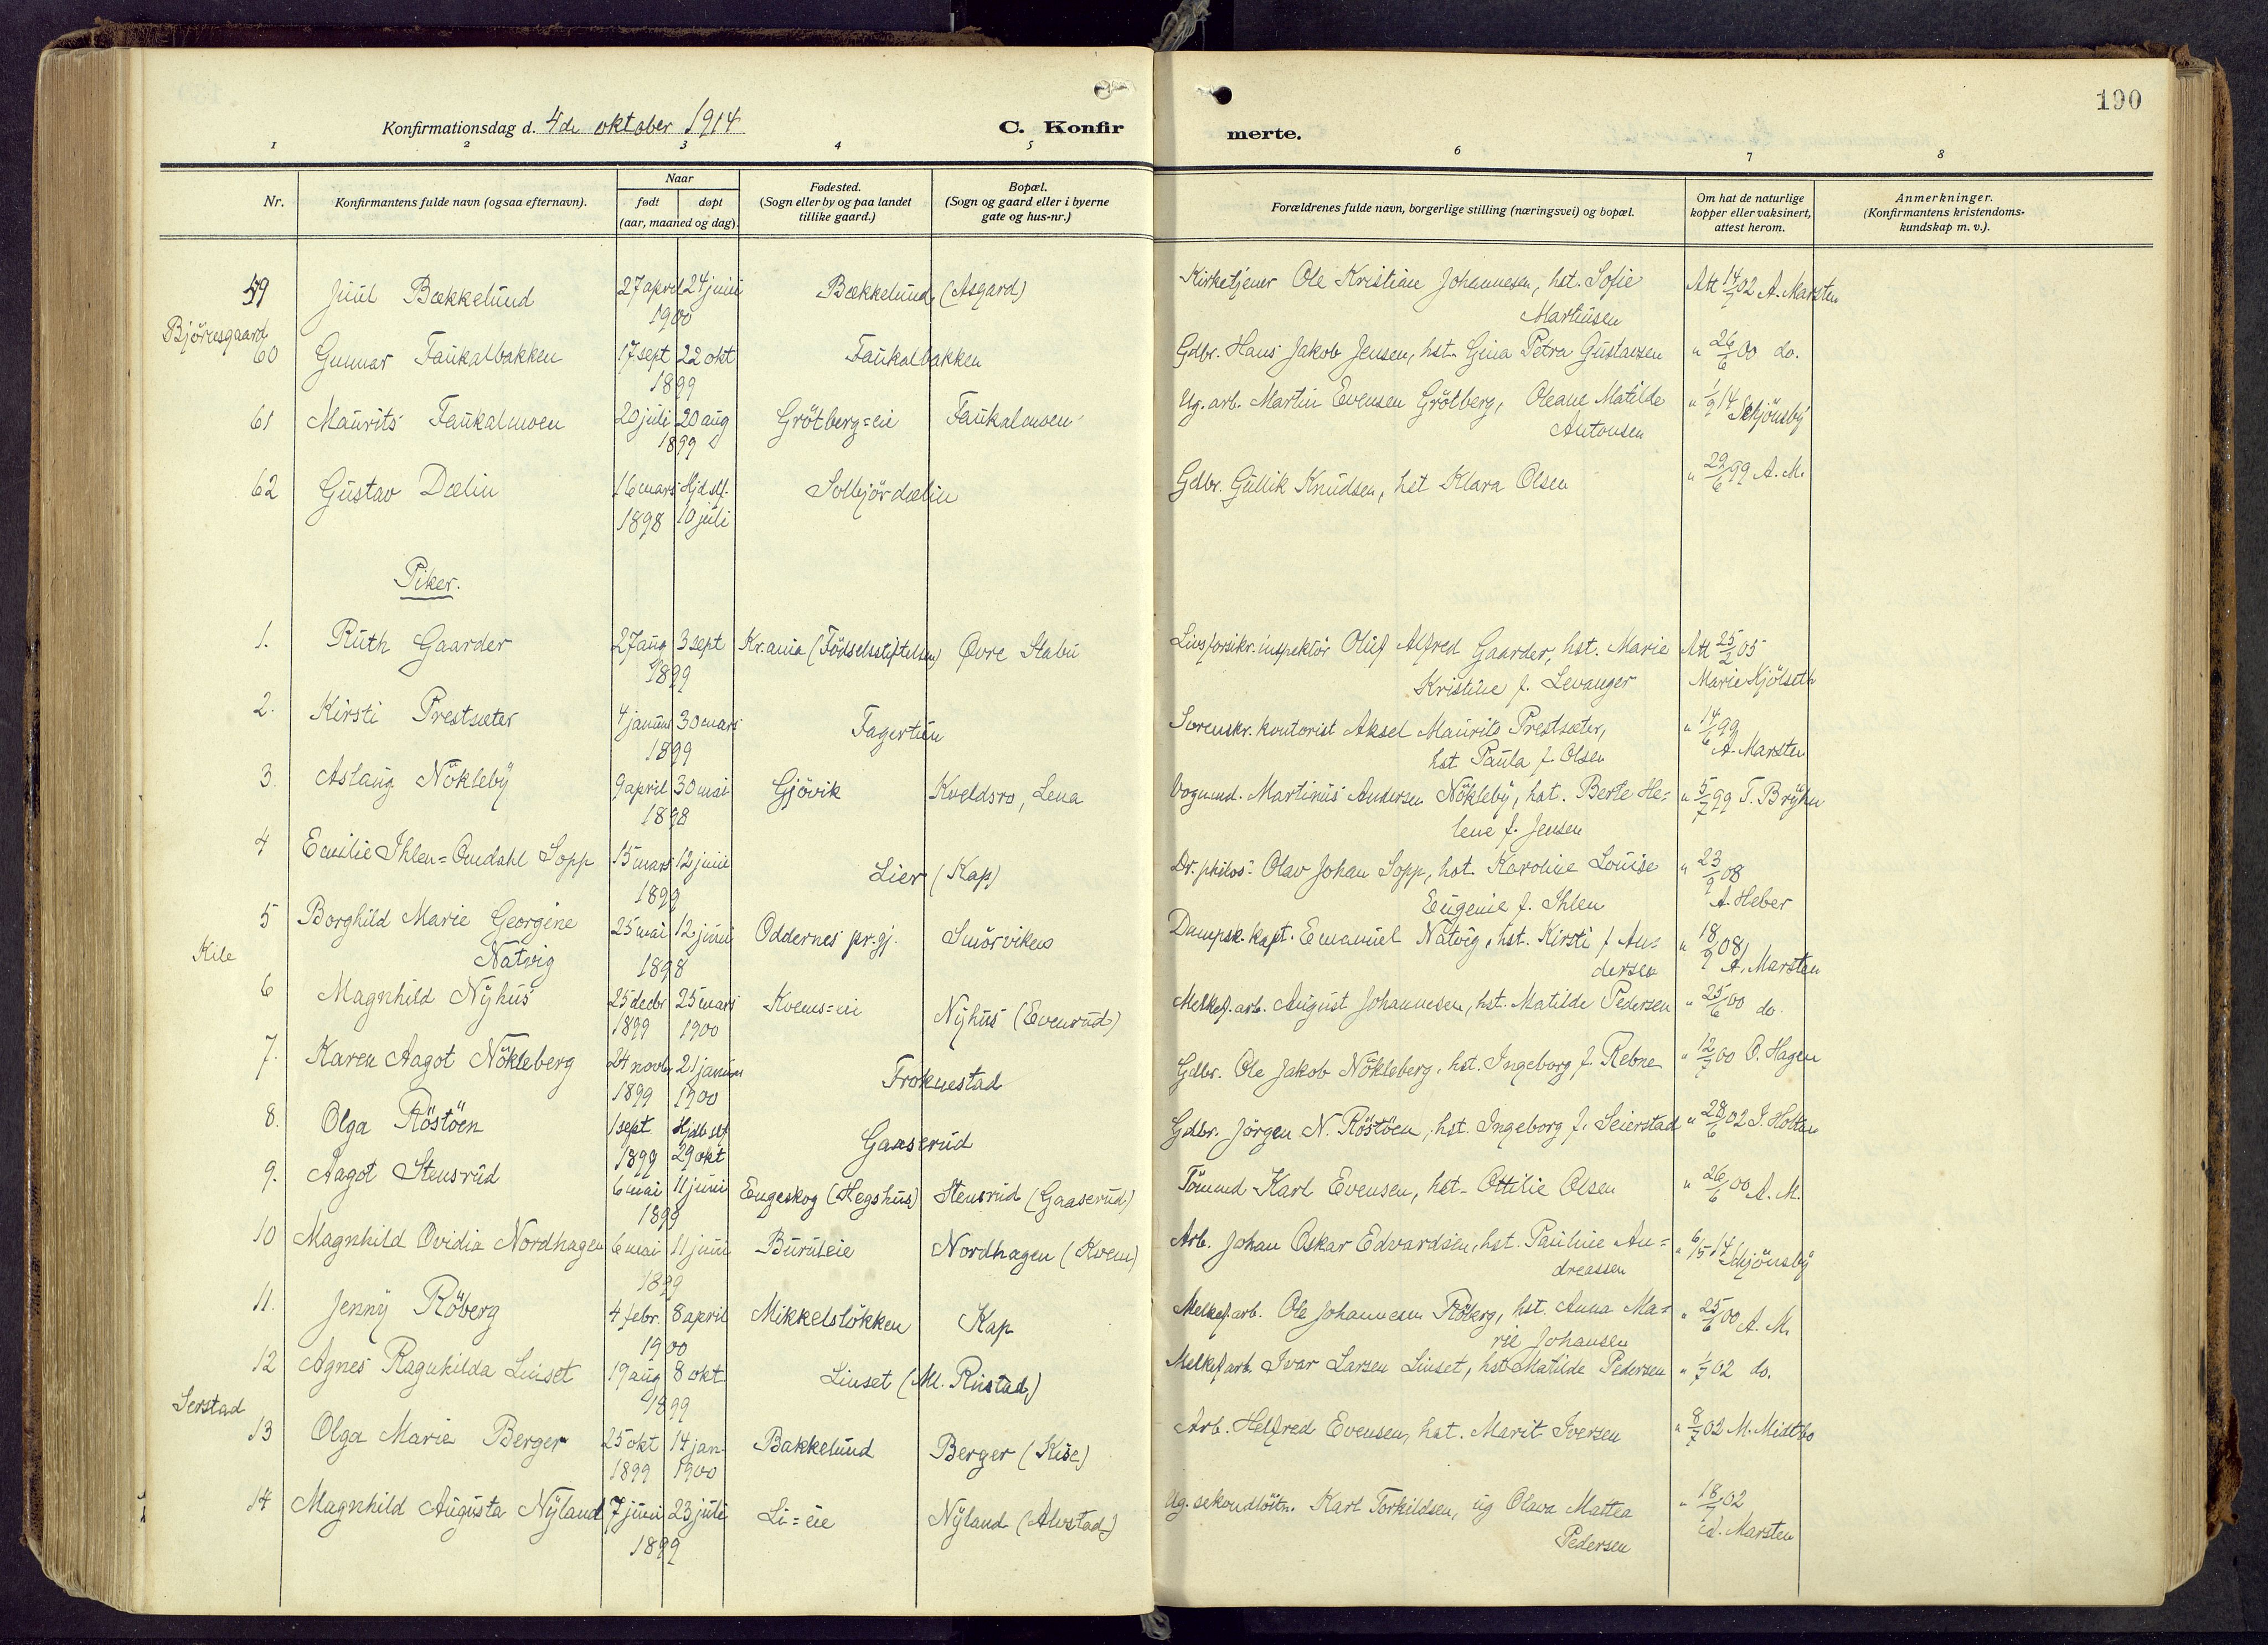 190
Konfirmationsdag d. 4de oktober 1914 C. Konfirmerte.
1 2 3 4 5 6 7 8
Nr.
Konfirmantens fulde navn (ogsaa efternavn).
Naar
født døpt
(aar, maaned og dag).
Fødested.
(Sogn eller by og paa landet
tillike gaard.)
Bopæl.
(Sogn og gaard eller i byerne
gate og hus-nr.)
Forældrenes fulde navn, borgerlige stilling (næringsvei) og bopæl.
Om hat de naturlige
kopper eller vaksinert,
attest herom.
Anmerkninger.
(Konfirmantens kristendoms-
kundskap m. v.).
59 Juul Bækkelund 27 april 24 juni Bækkelund (Asgard) Kirketjener Ole Kristian Johannesen, hst. Sofie Att 14/7 02 A. Marsten
1900 Martinsen
Björnsgaard
60 Gunnar Faukalbakken 17 sept 22 okt Faukalbakken Gdbr. Hans Jakob Jensen, hst. Gina Petra Gustavsen " 26/6 00 do.
1899
61 Maurits Faukalmoen 20 juli 20 aug Grötberg=eie Faukalmoen Ug. arb. Martin Evensen Grötberg, Oleane Matilde " 1/9 14 Schjönsby
1899 Antonsen
62 Gustav Dælin 16 mars Hjd. slf. Solbjördælin Gdbr. Gullik Knudsen, hst Klara Olsen " 29/6 99 A. M.
1898 10 juli
Piker.
1. Ruth Gaarder 27 aug 3 sept Kr.ania (Födselsstiftelsen) Øvre Stabu Livsforsikr.inspektör Oluf Alfred Gaarder, hst. Marie Att 25/2 05
1899 Kristine f. Levanger Marie Kjölseth
2. Kirsti Prestsæter 4 januar 30 mars Fagertun Sorenskr. kontorist Aksel Maurits Prestsæter, " 14/6 99
1899 hst Paula f. Olsen A. Marsten
3. Aslaug Nökleby 9 april 30 mai Gjövik Kveldsro, Lena Vognmd. Martinus Andersen Nökleby, hst. Berte He= " 5/7 99 T. Bryhn
1898 lene f. Jensen
4 Emilie Ihlen=Omdahl Sopp 15 mars 12 juni Lier (Kap) Dr. philos. Olav Johan Sopp, hst. Karoline Louise " 23/9 08
1899 Eugenie f. Ihlen A. Heber
5 Borghild Marie Georgine 25 mai 12 juni Oddernes pr.gj. Smörviken Dampsk. kapt. Emanuel Natvig, hst. Kirsti f An= " 18/9 08
Kile Natvig 1898 dersen A. Marsten
6 Magnhild Nyhus 25 decbr 25 mars Kvems=eie Nyhus (Evenrud) Melkef. arb. August Johannesen, hst. Matilde Pedersen " 25/6 00 do.
1899 1900
7. Karen Aagot Nökleberg 24 novbr 21 januar Froknestad Gdbr. Ole Jakob Nökleberg, hst. Ingeborg f. Rebne " 12/7 00 O. Hagen
1899 1900
8. Olga Röstöen 1 sept Hjdb slf Gaaserud Gdbr. Jörgen N. Röstöen, hst. Ingeborg f. Seierstad " 28/6 02 J. Holtan
1899 29 okt
9. Aagot Stensrud 6 mai 11 juni Engeskog (Hegshus) Stensrud (Gaaserud) Tömmd Karl Evensen, hst. Ottilie Olsen " 26/6 00 A. M.
1899
10 Magnhild Ovidia Nordhagen 6 mai 11 juni Buruleie Nordhagen (Kvem) Arb. Johan Oskar Edvardsen, hst. Pauline An= " 6/5 14 Schjönsby
1899 dreassen
11. Jenny Röberg 4 febr. 8 april Mikkelslökken Kap Melkef. arb. Ole Johannesen Röberg, hst. Anna Ma= " 25/6 00 A. M.
1900 rie Johansen
12 Agnes Ragnhilda Linset 19 aug 8 okt Linset (Ml. Rustad) Melkef arb. Ivar Larsen Linset, hst Matilde Pedersen " 1/7 02 do.
1899
Serstad
13 Olga Marie Berger 25 okt 14 jan Bakkelund Berger (Kise) Arb. Helfred Evensen, hst. Marit Iversen " 8/7 02 M. Midtbo
1899 1900
14 Magnhild Augusta Nyland 7 juni 23 juli Li=eie Nyland (Alvstad) Ug. sekondlöitn. Karl Torkildsen, ug Olava Mattea " 18/7 02
1899 Pedersen A. Marsten